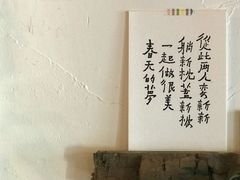 從此兩人新新
躺新枕蓋新被
一起做很美
春天的夢